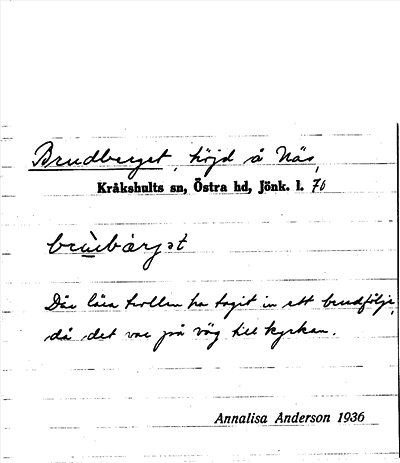 Brudberget, höjd å Näs,
Kråkshults sn, Östra hd, Jönk. l. 76
brùbàrjət
Där lära trollen ha tagit in ett brudfölje,
då det var på väg till kyrkan.
Annalisa Anderson 1936